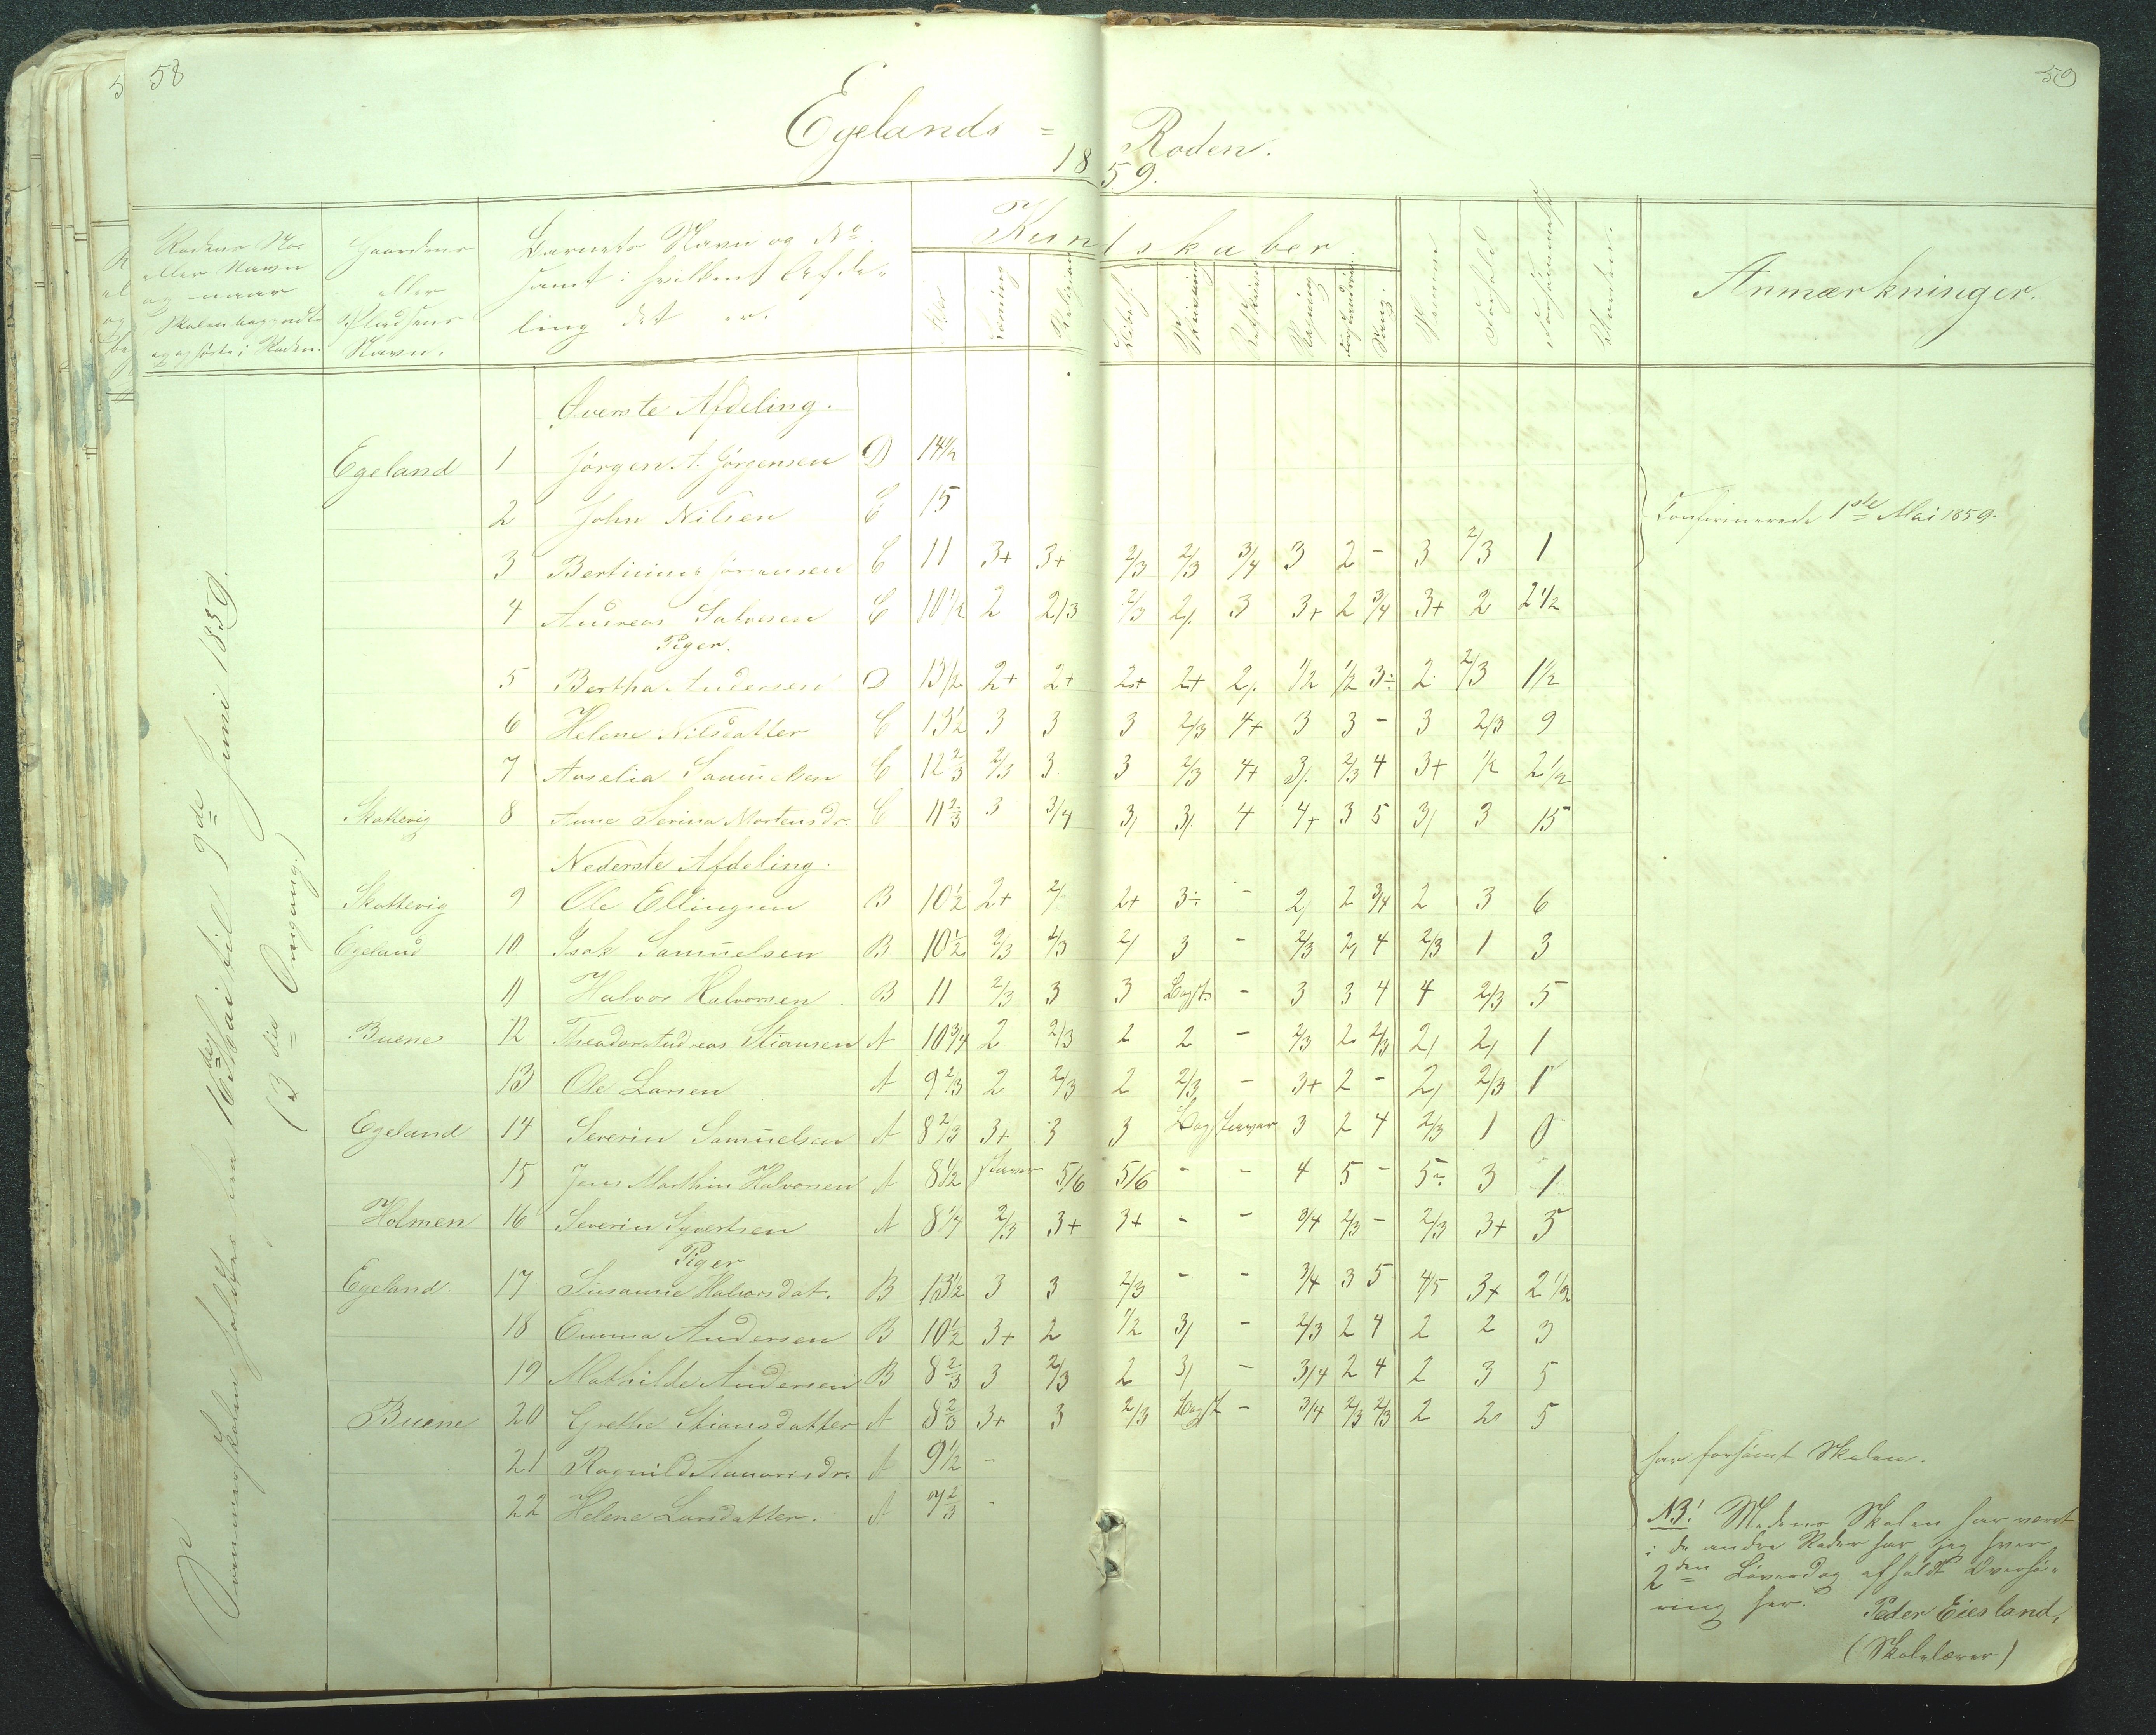 58
59
Egelands = Roden.
1859.
Rodens No.
eller Navn
og naar
Skolen begyndte
og ophørte i Roden.
Gaardens
eller
Pladsens
Navn.
Barnets Navn og No.
samt i hvilken Afde-
ling det er.
Kundskaber.
Alder
Læsning
Religion
Bibelh.
Skrivning
Retskrivning
Regning
Sang.
Evne
Forhold
Forsømmelse
Anmærkninger.
Sommerskolen holdtes her 16de Mai til 9de Juni 1859.
(3die Omgang.)
Øverste Afdeling.
Egeland 1 Jörgen A. Jörgensen D 14½
2 John Nilsen C 15
Confirmerede 1ste Mai 1859.
3 Bertinius Jörgensen C 11 3+ 3+ 2/3 2/3 3/4 3 2 - 3 2/3 1
4 Andreas Salvesen C 10½ 2 2/3 2/3 2/. 3 3+ 2 3/4 3+ 2 2½
Piger.
5 Bertha Andersen D 13½ 2+ 2+ 2+ 2+ 2/. 1/2 1/2 3÷ 2 2/3 1½
6 Helene Nilsdatter C 13½ 3 3 3 2/3 4+ 3 3 - 3 2/3 9
7 Aaselia Samuelsen C 12 2/3 2/3 3 3 2/3 4+ 3/. 2/3 4 3+ 1/2 2½
Skottevig 8 Anne Serina Mortensdr. C 11 2/3 3 3/4 3/ 3/. 4 4+ 3 5 3/ 3 15
Nederste Afdeling.
Skottevig 9 Ole Ellingsen B 10½ 2+ 2/ 2+ 3÷ - 2/ 2 3/4 2 3 6
Egeland 10 Isak Samuelsen B 10½ 2/3 2/3 2/. 3 - 2/3 2/ 4 2/3 1 3
11 Halvor Halvorsen B 11 2/3 3 3 Bogst. - 3 3 4 4 2/3 5
Buene 12 Theodor Andreas Stiansen A 10¾ 2 2/3 2 2 - 2/3 2 2/3 2/ 2/ 1
13 Ole Larsen A 9 2/3 2 2/3 2 2/3 - 3+ 2 - 2/ 2/3 1
Egeland 14 Severin Samuelsen A 8 2/3 3+ 3 3 Bogstaver 3 2 4 2/3 1 0
15 Jens Marthin Halvorsen A 8½ staver 5/6 5/6 - - 4 5 - 5÷ 3 1
Holmen 16 Severin Syvertsen A 8¼ 2/3 3+ 3+ - - 3/4 2/3 - 2/3 3+ 3
Piger
Egeland. 17 Susanne Halvorsdat. B 13½ 3 3 2/3 - - 3/4 3 5 4/5 3+ 2½
18 Emma Andersen B 10½ 3+ 2 1/2 3/ - 2/3 2 4 2 2 3
19 Mathilde Andersen B 8 2/3 3 2/3 2 3/ - 3/4 2 4 2 3 5
Buene 20 Grethe Stiansdatter A 8 2/3 3+ 3 2/3 Bogst - 3/4 2/3 2/3 2 2 5
21 Ragnild Aanonsdr. A 9½ -
22 Helene Larsdatter. A 7 2/3 -
har forsömt Skolen.
NB! Medens Skolen har været
i de andre Roder har jeg hver
2den Löverdag afholdt Overhö-
ring her.
Peder Eiesland,
(Skolelærer)